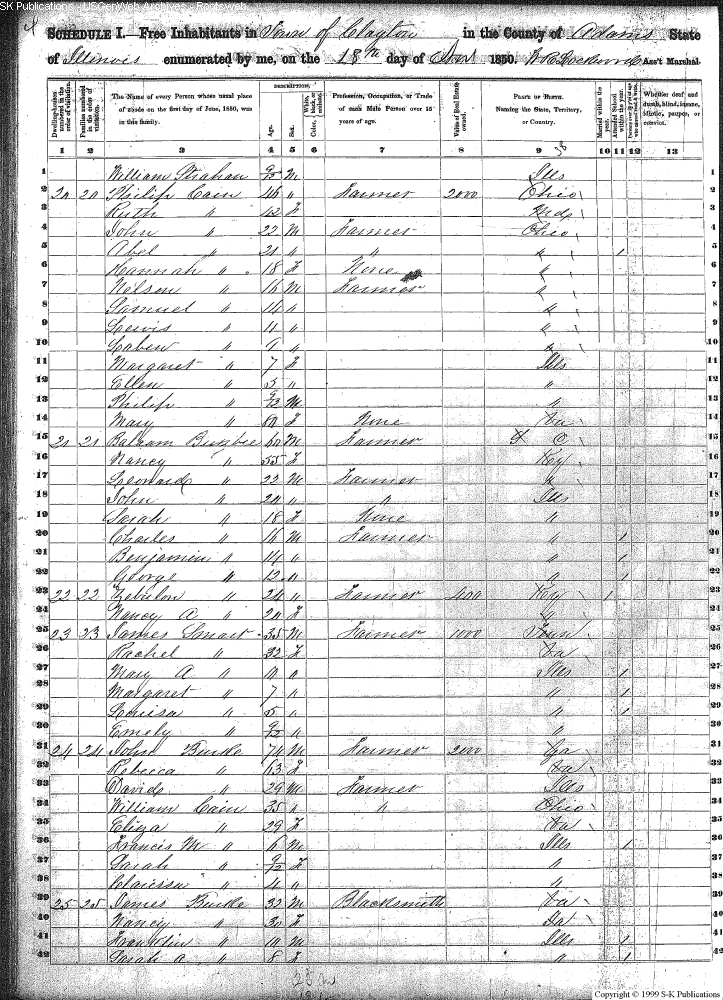 SK Publications - USGenWeb Archives - Rootsweb
SCHEDULE I.—Free Inhabitants in Town of Clayton in the County of Adams State
of Illinois enumerated by me, on the 18th day of 1850. Ass't Marshal.
Dwelling-houses numbered in the order of visitation.
Families numbered in the order of visitation.
The Name of every Person whose usual place of abode on the first day of June, 1850, was in this family.
DESCRIPTION.
Age.
Sex.
Color, White, black, or mulatto.
Profession, Occupation, or Trade of each Male Person over 15 years of age.
Value of Real Estate owned.
PLACE OF BIRTH. Naming the State, Territory, or Country.
Married within the year.
Attended School within the year.
Whether deaf and dumb, blind, insane, idiotic, pauper, or convict.
1 2 3 4 5 6 7 8 9 10 11 12 13
1 William Strahan 9/12 M Ills 1
2 20 20 Philip Cain 46 " Farmer 2000 Ohio 2
3 Ruth " 42 F 3
4 John " 22 M Farmer Ohio 4
5 Abel " 21 " " " 1 5
6 Hannah " 18 F None " 6
7 Nelson " 16 M Farmer " 7
8 Samuel " 14 " " 8
9 Lewis " 11 " " 9
10 " 9 " " 10
11 Margaret " 7 F Ills 11
12 Ellen " 5 " " 12
13 Philip " 9/12 M " 13
14 Mary " 80 F None Va 14
15 21 21 60 M Farmer S C 15
16 Nancy " 55 F Ky 16
17 Leonard " 22 M Farmer " 17
18 John " 20 " " Ills 18
19 Sarah " 18 F None " 19
20 Charles " 16 M Farmer " 1 20
21 Benjamin " 14 " " 1 21
22 George " 12 " " 1 22
23 22 22 Zebulon " 24 " Farmer 400 Ky 1 23
24 Nancy A " 20 F " 24
25 23 23 James Smart 35 M Farmer 1000 Tenn 25
26 Rachel " 32 F Va 26
27 Mary A " 10 " Ills 1 27
28 Margaret " 7 " " 1 28
29 Louisa " 5 " " 1 29
30 Emely " 9/12 " " 30
31 24 24 John Burke 74 M Farmer 2000 31
32 Rebecca " 63 F Va 32
33 David " 29 M Farmer Ills 33
34 William Cain 35 " " Ohio 34
35 Eliza " 29 F Va 35
36 Francis M " 6 M Ills 1 36
37 Sarah " 9/12 F " 37
38 Clarissa " 4 " " 38
39 25 25 James Burke 32 M Blacksmith Va 39
40 Nancy " 30 F 40
41 Franklin " 10 M Ills 1 41
42 Sarah A " 8 F " 1 42
Copyright © 1999 S-K Publications